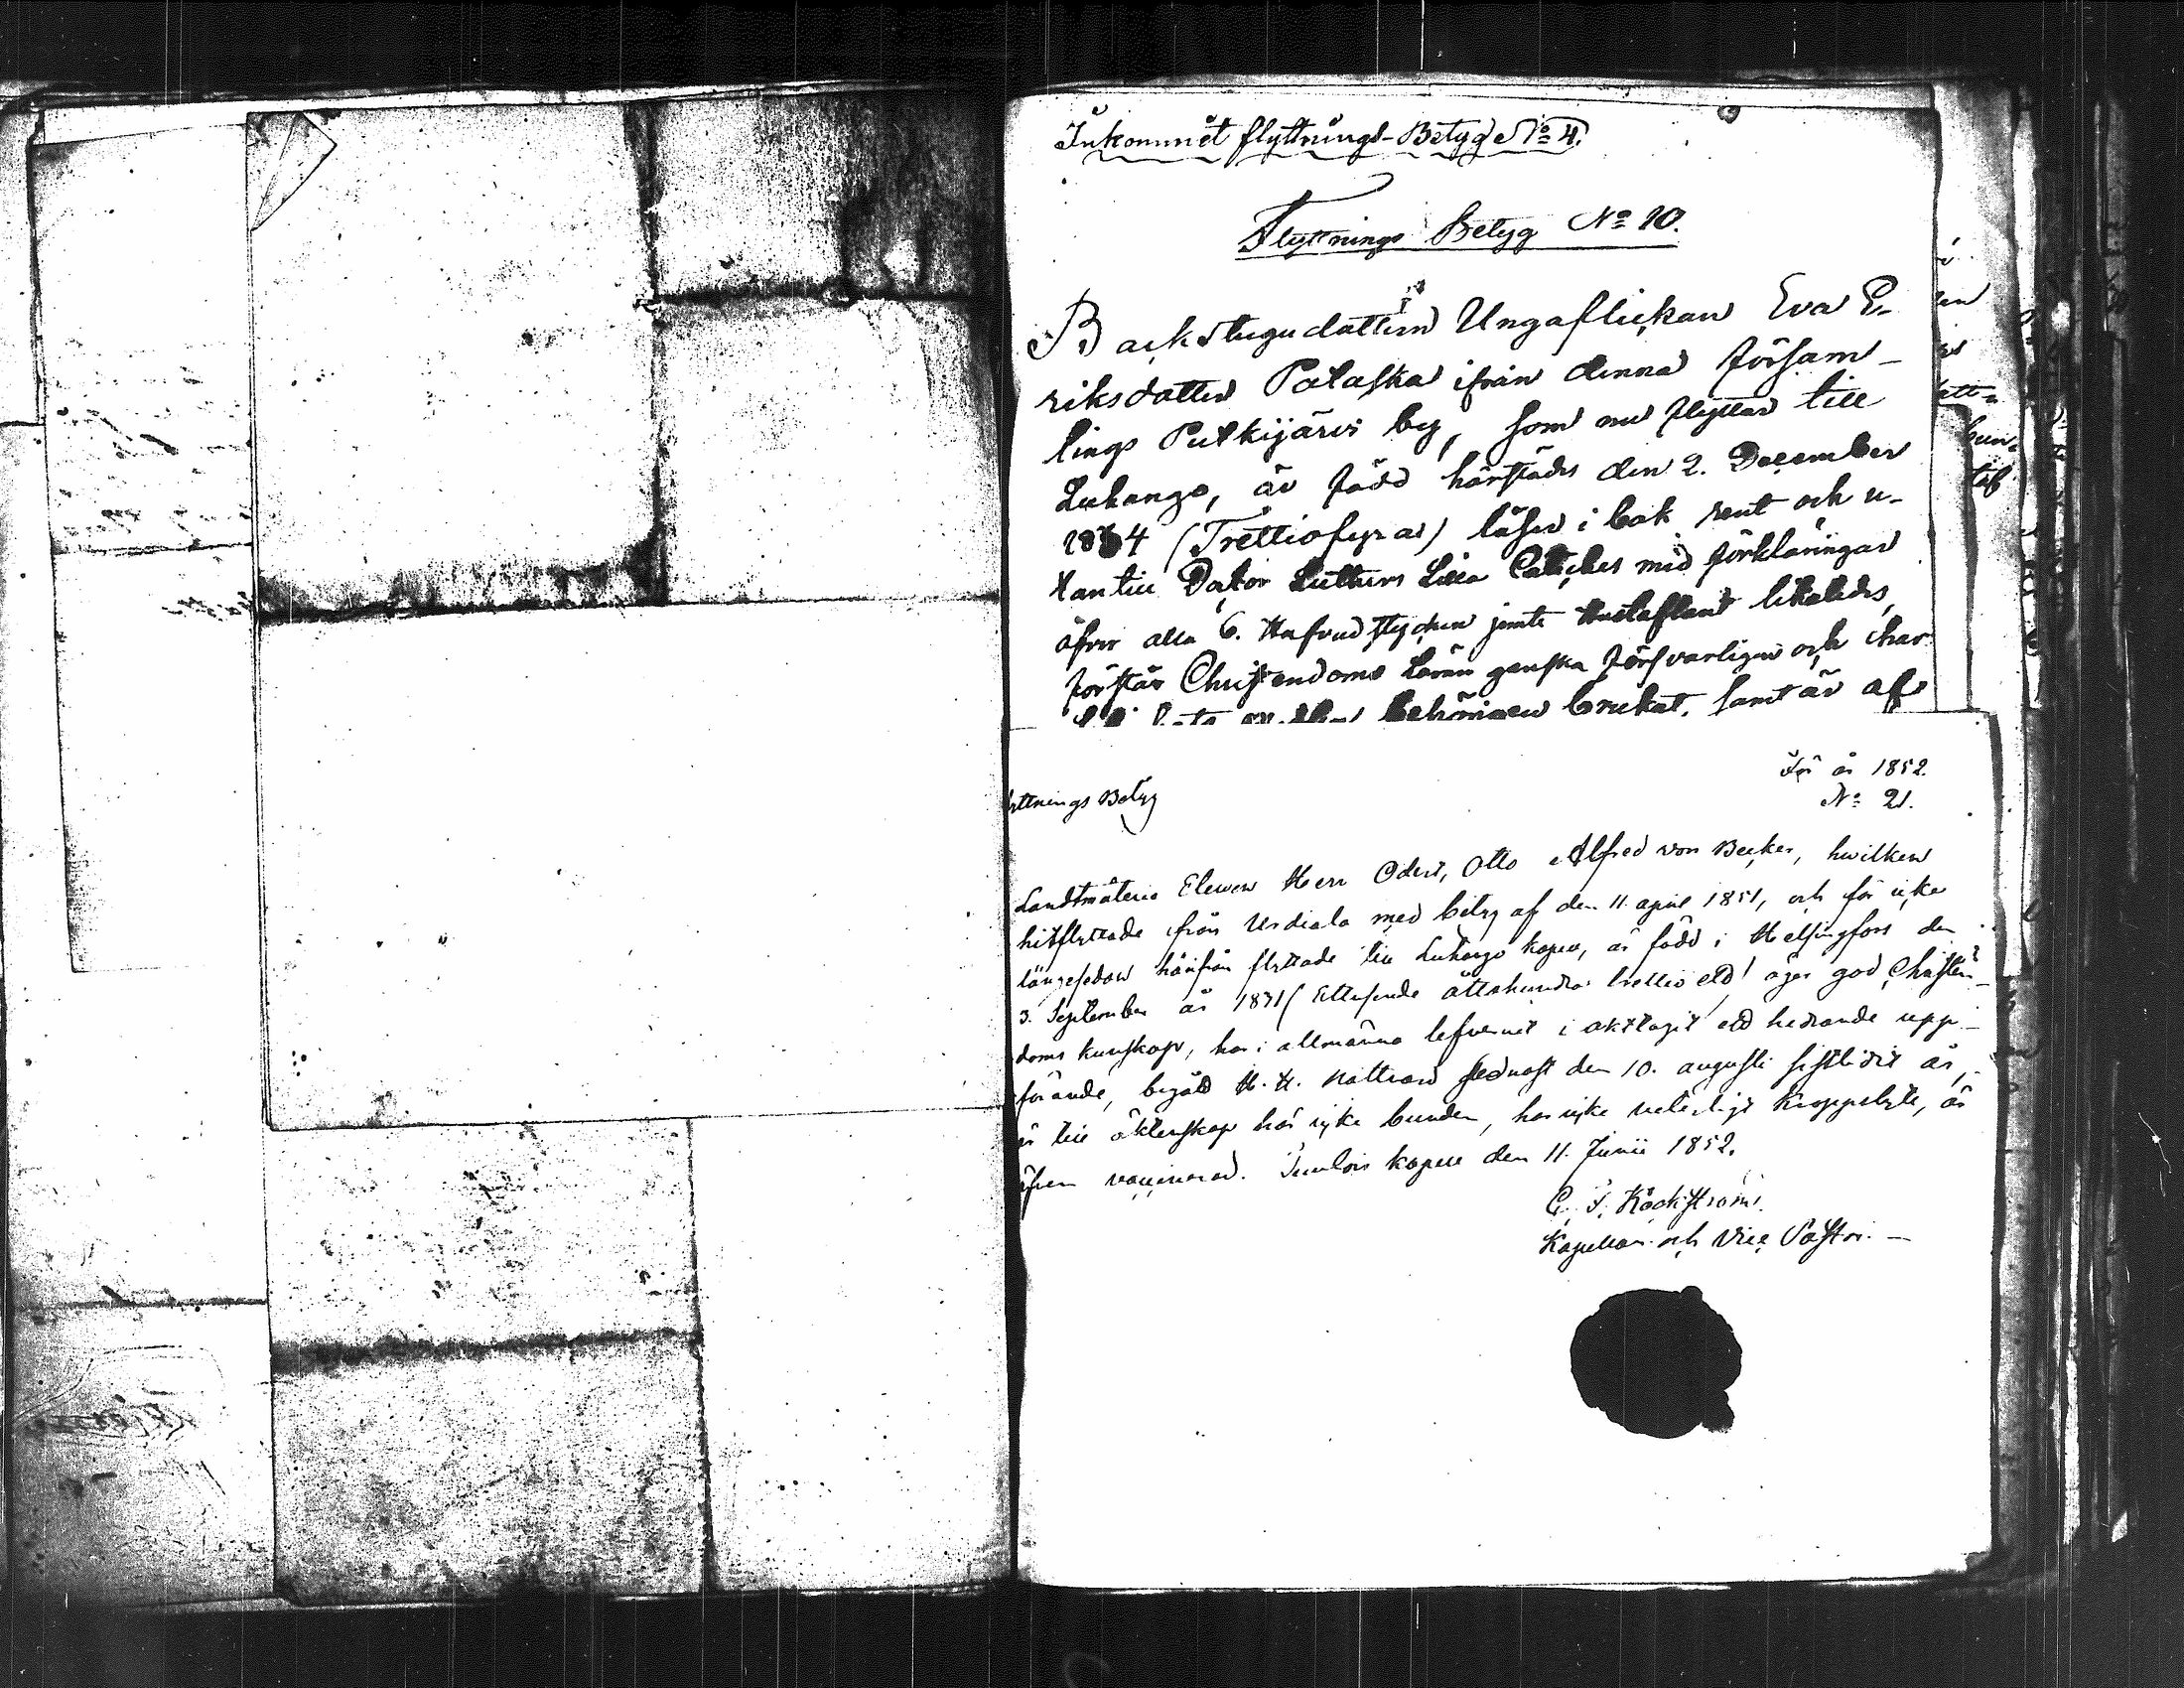 Inkommet flyttnings-Betyg No 4.
Flyttnings Betyg No 10.
Backstugudottren Ungaflickan Eva E-
riksdotter Palaska ifrån denna försam-
lings Putkijärvi by, som nu flyttar till
Luhango, är född härstädes den 2. December
1834 (Trettiofyra) läser i bok rent och u-
tantill Doktor Luthers Lilla Cateches med förklaringar
öfver alla 6. Hufvudstycken jemte Hustaflan likaledes,
förstår Christendoms Läran ganska försvarligen och har
behörigen brukat, samt är af
För år 1852.
No 21.
yttnings Betyg
Landtmäteri Eleven Herr Odert, Otto Alfred von Becker, hwilken
hitflyttade från Urdiala med betyg af den 11 april 1851, och för icke
längesedan härifrån flyttade till Luhango kapell, är född i Helsingfors den
3. September år 1831 (Ettusende åttahundra trettio ett) äger god Christen-
doms kunskap, har i allmänna lefvernet i akttagit ett hedrande upp-
förande, begått H. H. Nattvard sednast den 10. augusti sistlidit år,
är till äktenskap här icke bunden, har icke veterligt kroppslyte, är
äfven vaccinerad. Tuulois kapell den 11. Junii 1852.
C. F. Käckström.
Kapellan och Vice Pastor.